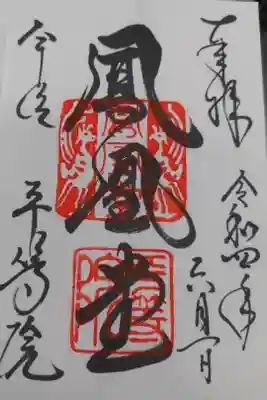 奉拝
令和四年
六月一日
鳳凰堂
宇治
平等院